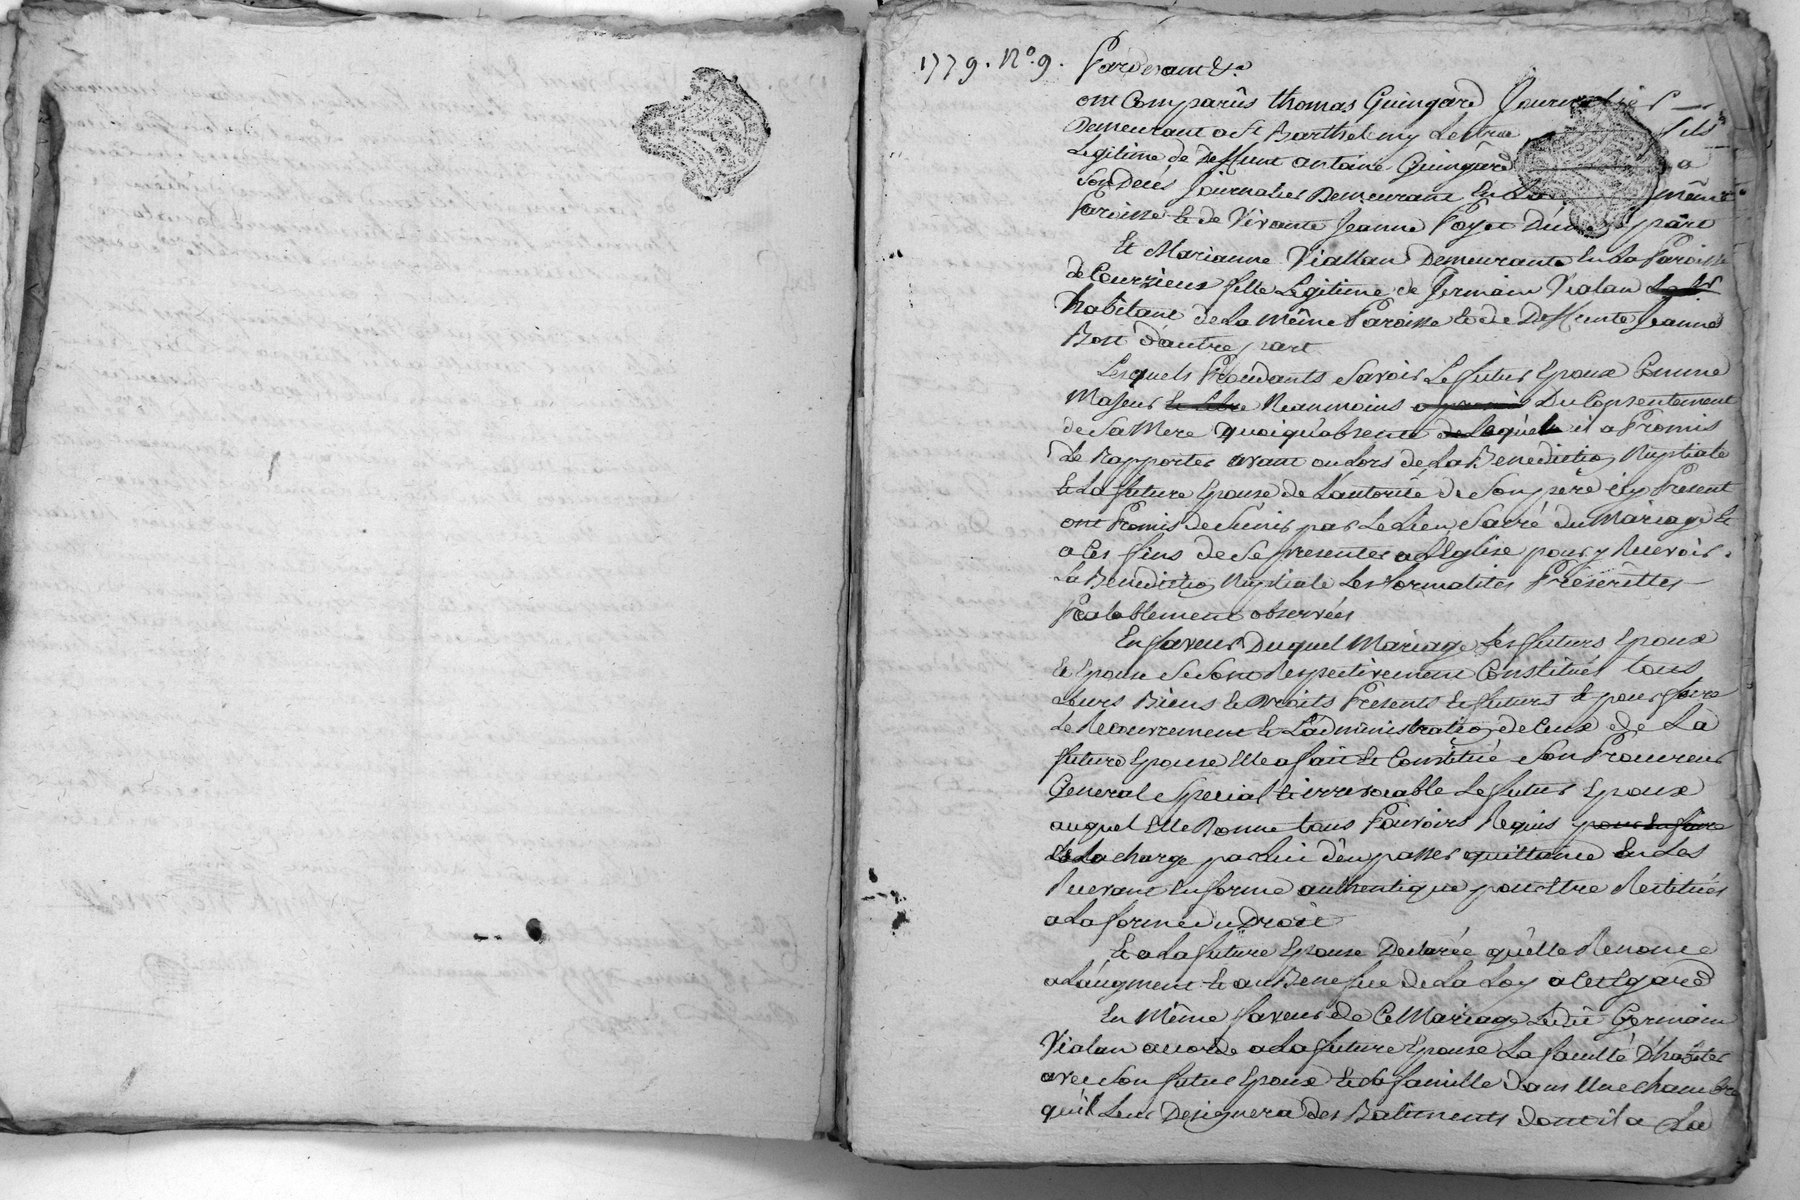 1779. N.º 9. Pardevant &.a
ont Comparûs thomas Guingard Journalier
Demeurant a St Barthelemy Lestra fils
Legitime de Deffunt antoine Guingard a
Son Deces Journalier Demeurant En La même
Paroisse Et de Vivante Jeanne Poyet D'une part
Et Marianne Viallan Demeurante En La Paroisse
de Courzieux fille Legitime de Germain Vialan
habitant de La même Paroisse Et de Deffunte Jeanne
Bost d'autre part
Lesquels Procédants Savoir Le futur Epoux Comme
Majeur et Libre Neanmoins Du Consentement
de Sa Mere quoiqu'absente de Laquelle il a Promis
Le Rapporter avant ou Lors de La Benediction Nuptiale
Et La future Epouse de L'autorité de Son père icy Present
ont Promis de S'unir par Le Lien Sacré du Mariage Et
a Ces fins de Se presenter a L'Eglise pour y Recevoir
La Benediction Nuptiale Les formalités Prescrittes
Prealablement observées
En faveur Duquel Mariage Les futurs Epoux
Et Epouse Se Sont Respectivement Constitués tous
Leurs Biens Et Droits Presents Et futurs Et pour faire
Le Recouvrement Et L'administration de Ceux de La
future Epouse Elle a fait Et Constitué Son Procureur
General Special Et irrevocable Le futur Epoux
auquel Elle Donne tous Pouvoirs Requis pour En faire
a La charge par Lui d'en passer quittance En Les
Recevant En forme authentique pour Etre Restitués
a La forme du Droit
Et a La future Epouse Declarée qu'elle Renonce
a L'augment Et au Benefice de La Loy a Cet Egard
En Même faveur de Ce Mariage Ledit Germain
Vialan accorde a La future Epouse La faculté D'habiter
avec Son futur Epoux Et Sa famille dans Une chambre
qu'il Leur Designera des Batiments dont il a La